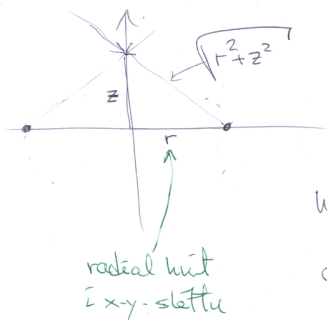 √(r²+z²)
z
r
radial hnit
i x-y-sléttu